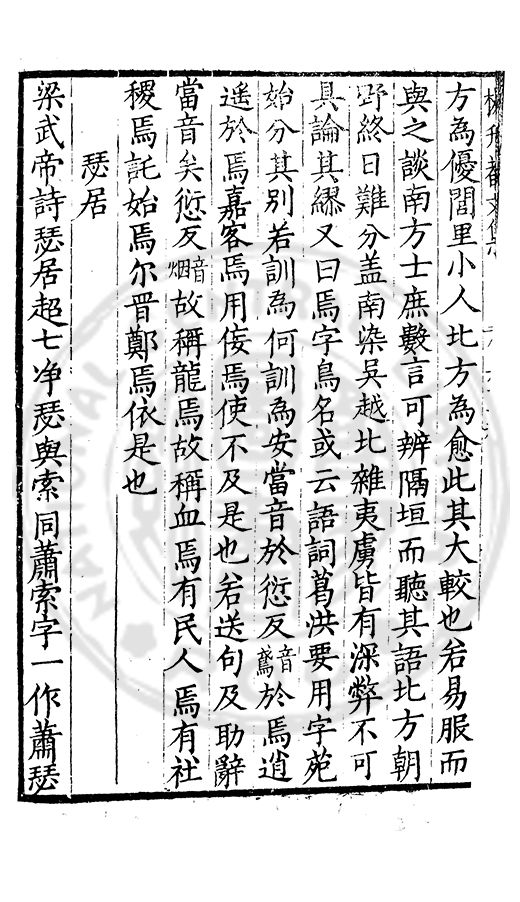 方為優閭里小人北方為愈此其大較也若易服而
與之談南方士庶數言可辨隔垣而聽其語北方朝
野終日難分盖南染吳越北雜夷虜皆有深弊不可
具論其繆又曰焉字鳥名或云語詞葛洪要用字苑
始分其別若訓為何訓為安當音於愆反音鳶於焉逍
遙於焉嘉客焉用佞焉使不及是也若送句及助辭
當音矣愆反音烟故稱龍焉故稱血焉有民人焉有社
稷焉託始焉尔晋鄭焉依是也
瑟居
梁武帝詩瑟居超七净瑟與索同蕭索字一作蕭瑟